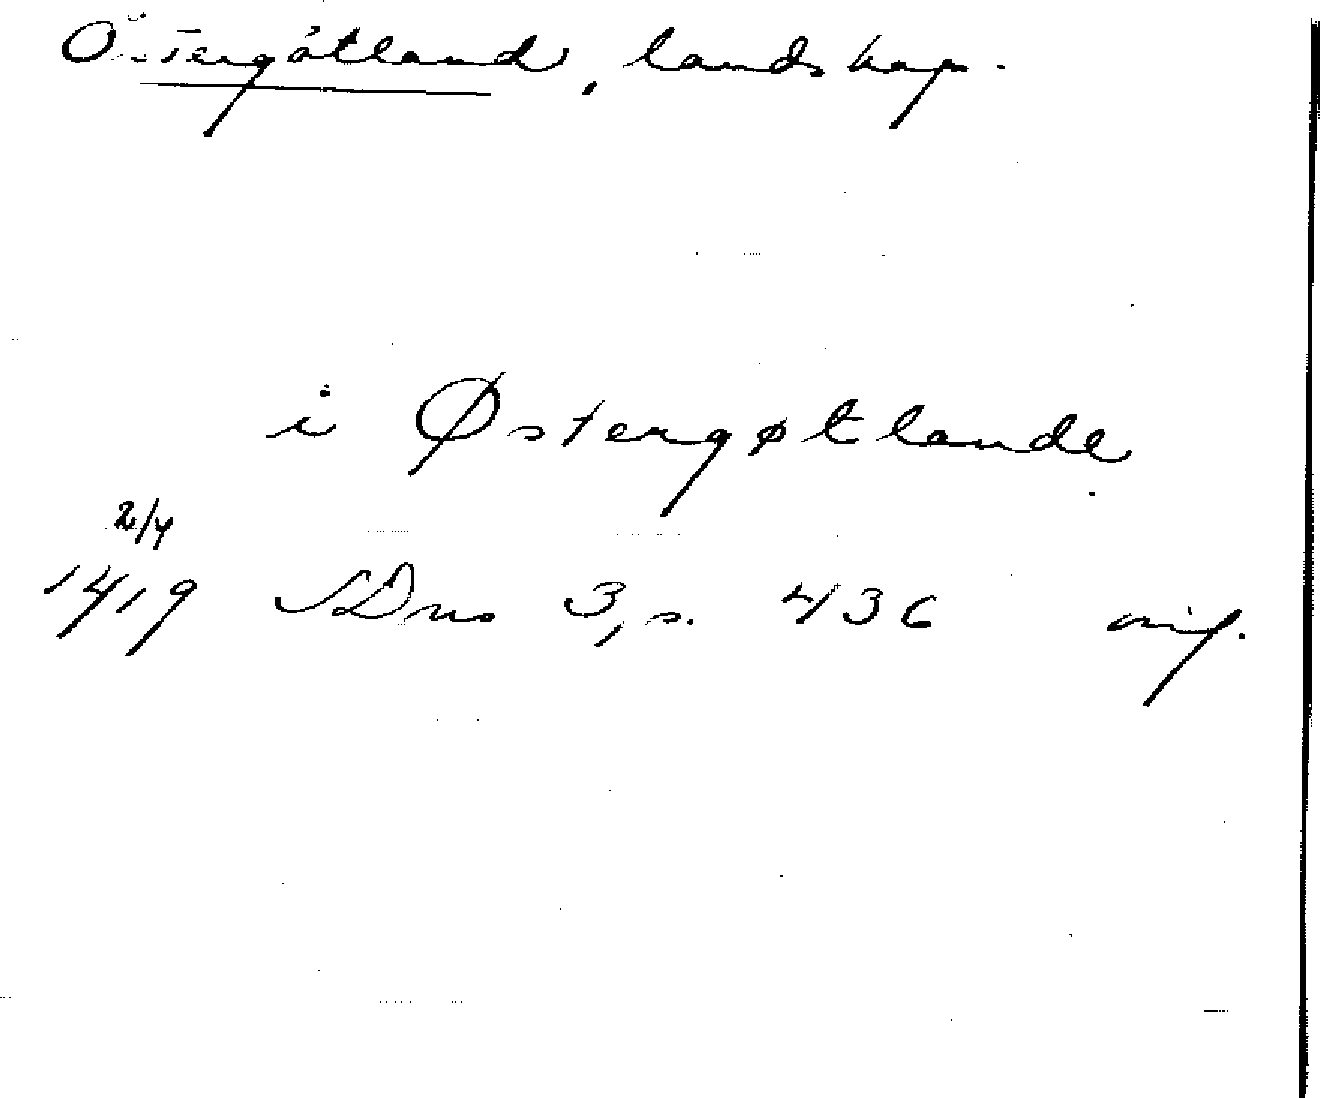 Östergötland, landskap.
i Østergøtlande
2/4
1419 SDns 3, s. 436 avif.